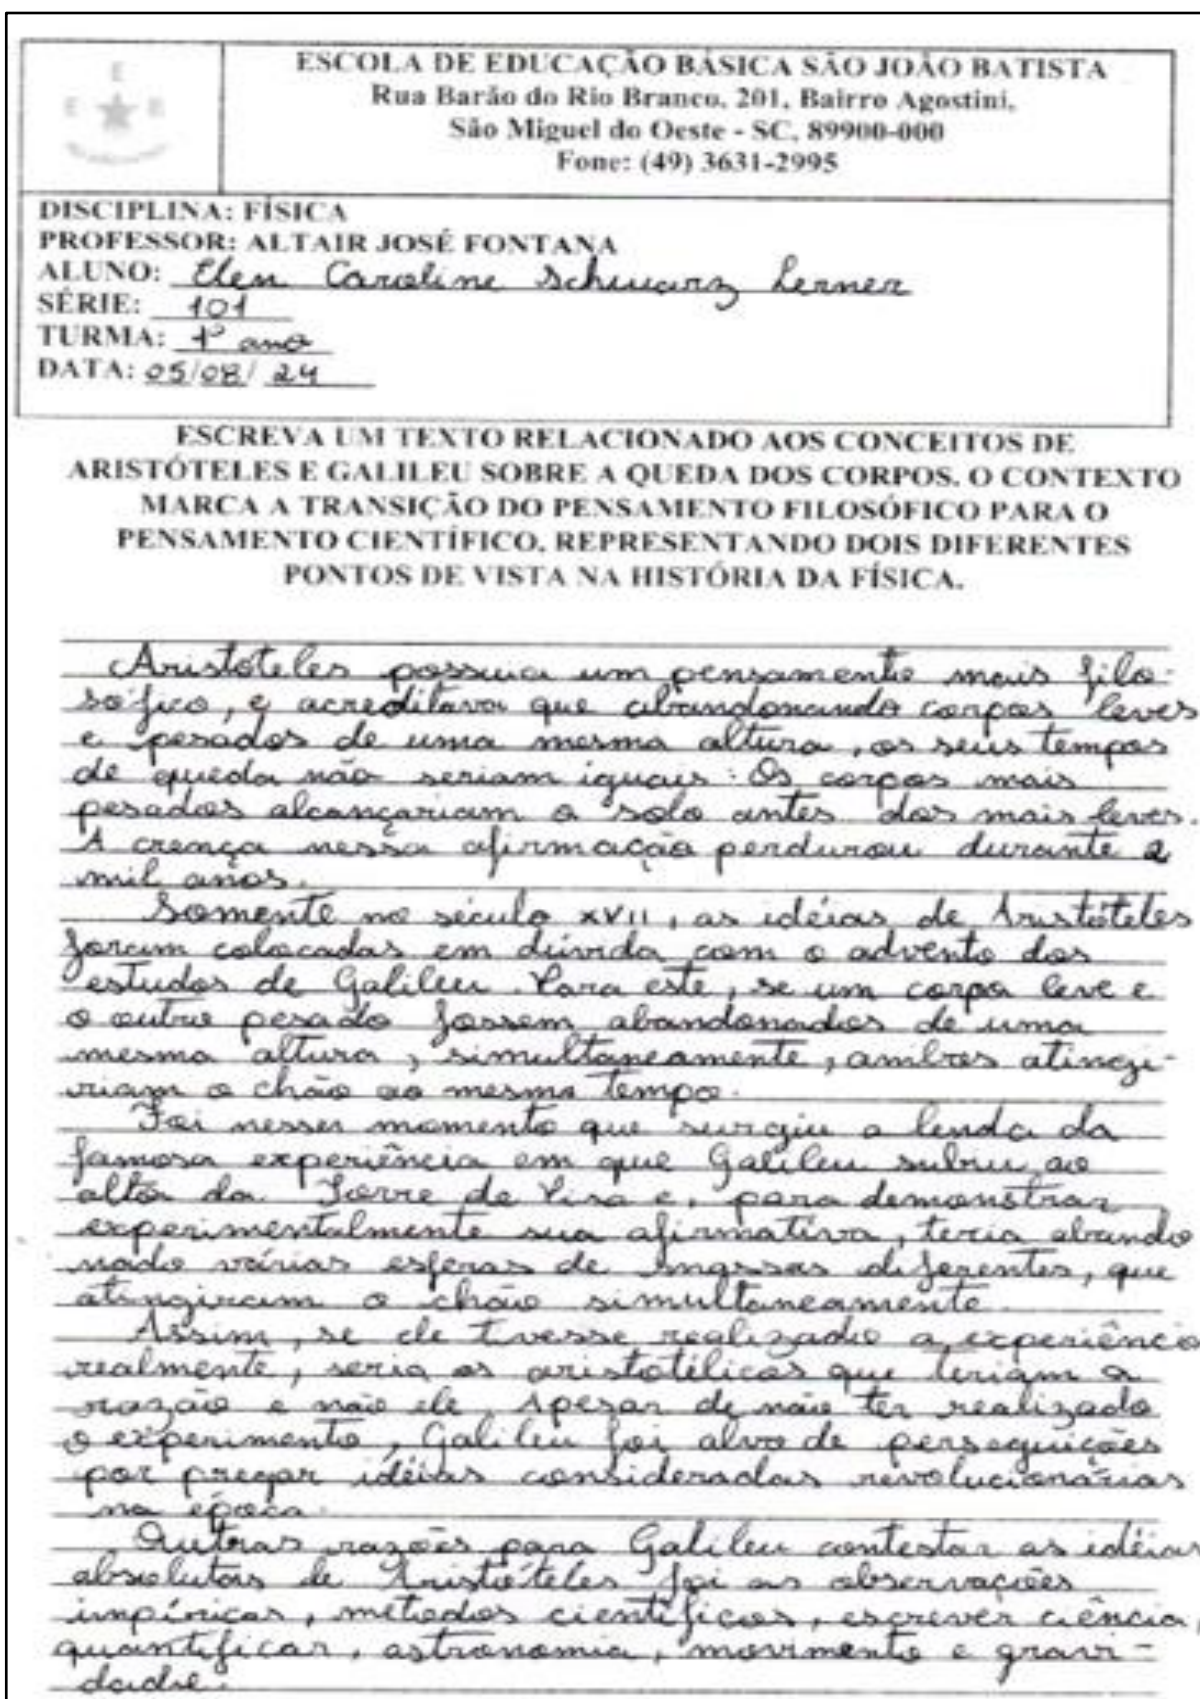 E
E E
ESCOLA DE EDUCAÇÃO BÁSICA SÃO JOÃO BATISTA
Rua Barão do Rio Branco, 201, Bairro Agostini,
São Miguel do Oeste - SC, 89900-000
Fone: (49) 3631-2995
DISCIPLINA: FÍSICA
PROFESSOR: ALTAIR JOSÉ FONTANA
ALUNO: Elen Caroline Schwarz Lerner
SÉRIE: 101
TURMA: 1º ano
DATA: 05/08/24
ESCREVA UM TEXTO RELACIONADO AOS CONCEITOS DE
ARISTÓTELES E GALILEU SOBRE A QUEDA DOS CORPOS. O CONTEXTO
MARCA A TRANSIÇÃO DO PENSAMENTO FILOSÓFICO PARA O
PENSAMENTO CIENTÍFICO, REPRESENTANDO DOIS DIFERENTES
PONTOS DE VISTA NA HISTÓRIA DA FÍSICA.
Aristóteles possuia um pensamento mais filo-
sófico, e acreditava que abandonando corpos leves
e pesados de uma mesma altura, os seus tempos
de queda não seriam iguais: Os corpos mais
pesados alcançariam o solo antes dos mais leves.
A crença nessa afirmação perdurou durante 2
mil anos.
Somente no século XVII, as idéias de Aristóteles
foram colocadas em dúvida com o advento dos
estudos de Galileu. Para este, se um corpo leve e
o outro pesado fossem abandonados de uma
mesma altura, simultaneamente, ambos atingi-
riam o chão ao mesmo tempo.
Foi nesse momento que surgiu a lenda da
famosa experiência em que Galileu subiu ao
alto da Torre de Pisa e, para demonstrar
experimentalmente sua afirmativa, teria abando
nado várias esferas de massas diferentes, que
atingiram o chão simultaneamente.
Assim, se ele tivesse realizado a experiência
realmente, seria os aristotélicos que teriam a
razão e não ele, Apesar de não ter realizado
o experimento, Galileu foi alvo de perseguições
por pregar idéias consideradas revolucionárias
na época.
Outras razões para Galileu contestar as idéias
absolutas de Aristóteles foi as observações
impíricas, métodos científicos, escrever ciência,
quantificar, astronomia, movimento e gravi-
dade.